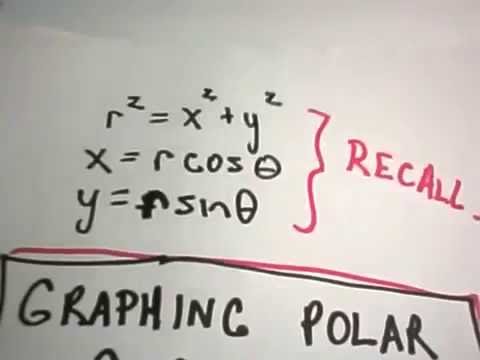 r² = x² + y²
x = r cos θ
y = r sin θ
RECALL
GRAPHING POLAR